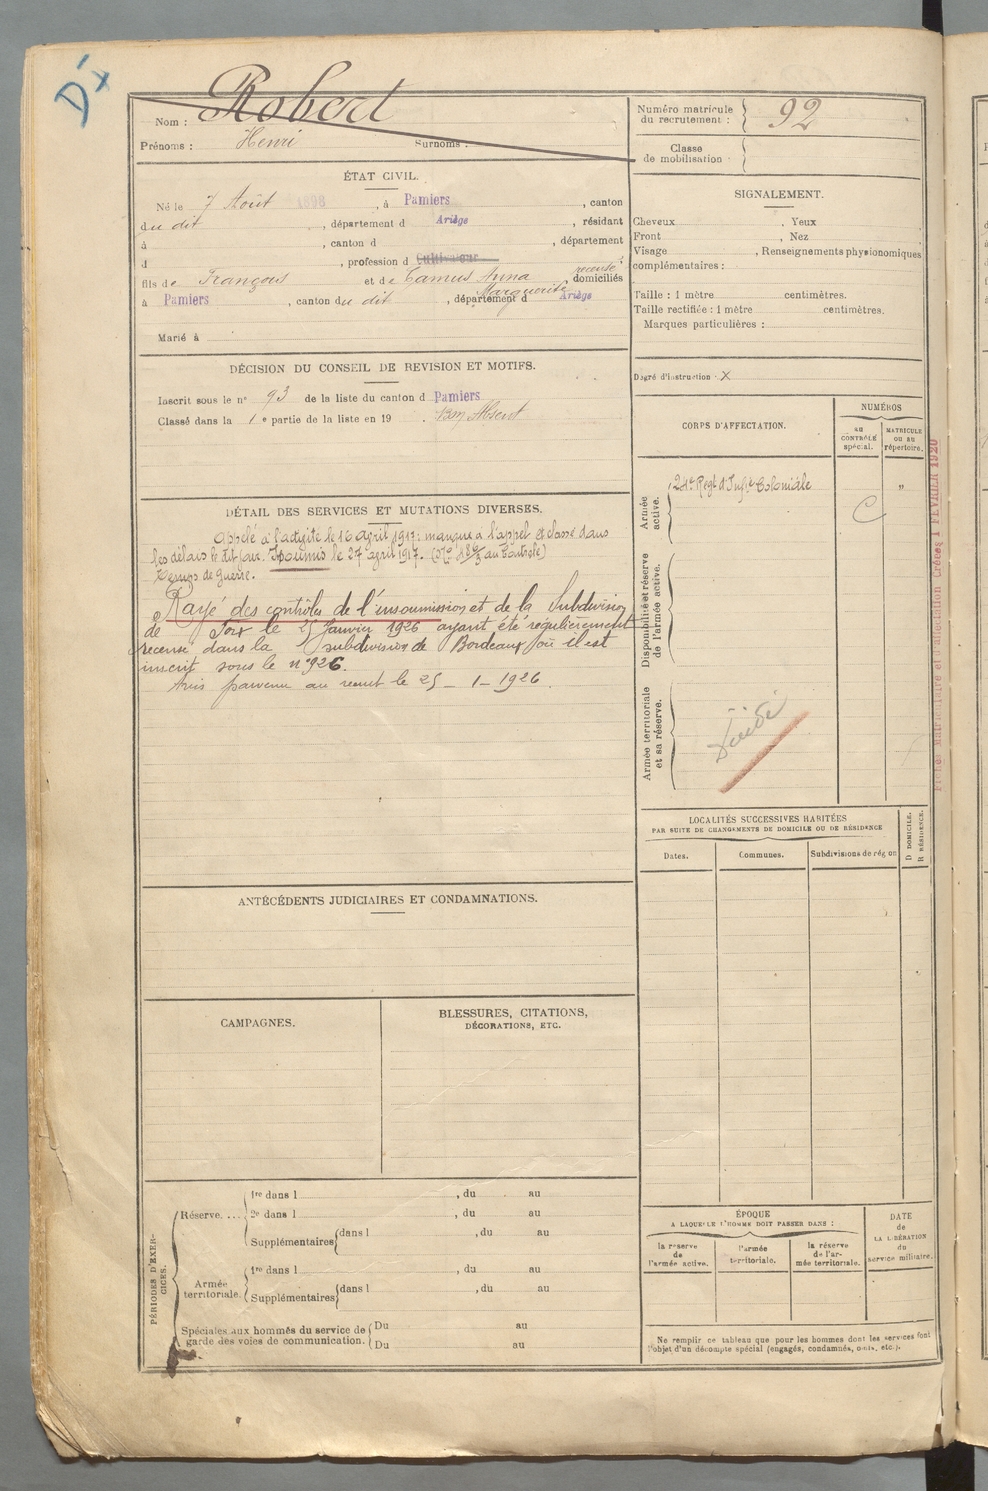 Nom : Robert
Prénoms : Henri Surnoms :
Numéro matricule du recrutement : 92
Classe de mobilisation
ÉTAT CIVIL.
Né le 7 Août 1898, à Pamiers, canton
du dit, département d Ariège, résidant
à , canton d , département
d , profession d Cultivateur
fils de François et de Camus Anna Marguerite, domiciliés
à Pamiers, canton du dit, département d Ariège
Marié à
SIGNALEMENT.
Cheveux , Yeux
Front , Nez
Visage , Renseignements physionomiques
complémentaires :
Taille : 1 mètre centimètres.
Taille rectifiée : 1 mètre centimètres.
Marques particulières :
Degré d'instruction : X
DÉCISION DU CONSEIL DE REVISION ET MOTIFS.
Inscrit sous le n° 93 de la liste du canton d Pamiers
Classé dans la 1e partie de la liste en 19 . Bon Absent
DÉTAIL DES SERVICES ET MUTATIONS DIVERSES.
Appelé à l'activité le 16 avril 1917; manque à l'appel et classé dans
les délais le dit jour. Insoumis le 27 avril 1917. au Contrôle)
temps de Guerre.
Rayé des contrôles de l'insoumission et de la Subdivision
de Foix le 25 Janvier 1926 ayant été régulièrement
recensé dans la subdivision de Bordeaux où il est
inscrit sous le n° 926.
Avis parvenu au recrut le 25 - 1 - 1926.
CORPS D'AFFECTATION.
NUMÉROS
au CONTRÔLE spécial.
MATRICULE ou au répertoire.
Armée active.
24e Regt d'Infie Coloniale
C "
Disponibilité et réserve de l'armée active.
Armée territoriale et sa réserve.
Fiches Matriculaire et d'affectation Créées 1 FEVRIER 1920
LOCALITÉS SUCCESSIVES HABITÉES
PAR SUITE DE CHANGEMENTS DE DOMICILE OU DE RÉSIDENCE
Dates. Communes. Subdivisions de région
D DOMICILE.
R RÉSIDENCE.
ANTÉCÉDENTS JUDICIAIRES ET CONDAMNATIONS.
CAMPAGNES.
BLESSURES, CITATIONS,
DÉCORATIONS, ETC.
PÉRIODES D'EXERCICES.
Réserve....
1re dans l , du au
2e dans l , du au
Supplémentaires dans l , du au
Armée territoriale.
1re dans l , du au
Supplémentaires dans l , du au
Spéciales aux hommes du service de
garde des voies de communication.
Du au
Du au
ÉPOQUE
A LAQUELLE L'HOMME DOIT PASSER DANS :
la réserve de l'armée active.
l'armée territoriale.
la réserve de l'armée territoriale.
DATE de LA LIBÉRATION du service militaire.
Ne remplir ce tableau que pour les hommes dont les services font
l'objet d'un décompte spécial (engagés, condamnés, omis, etc.).